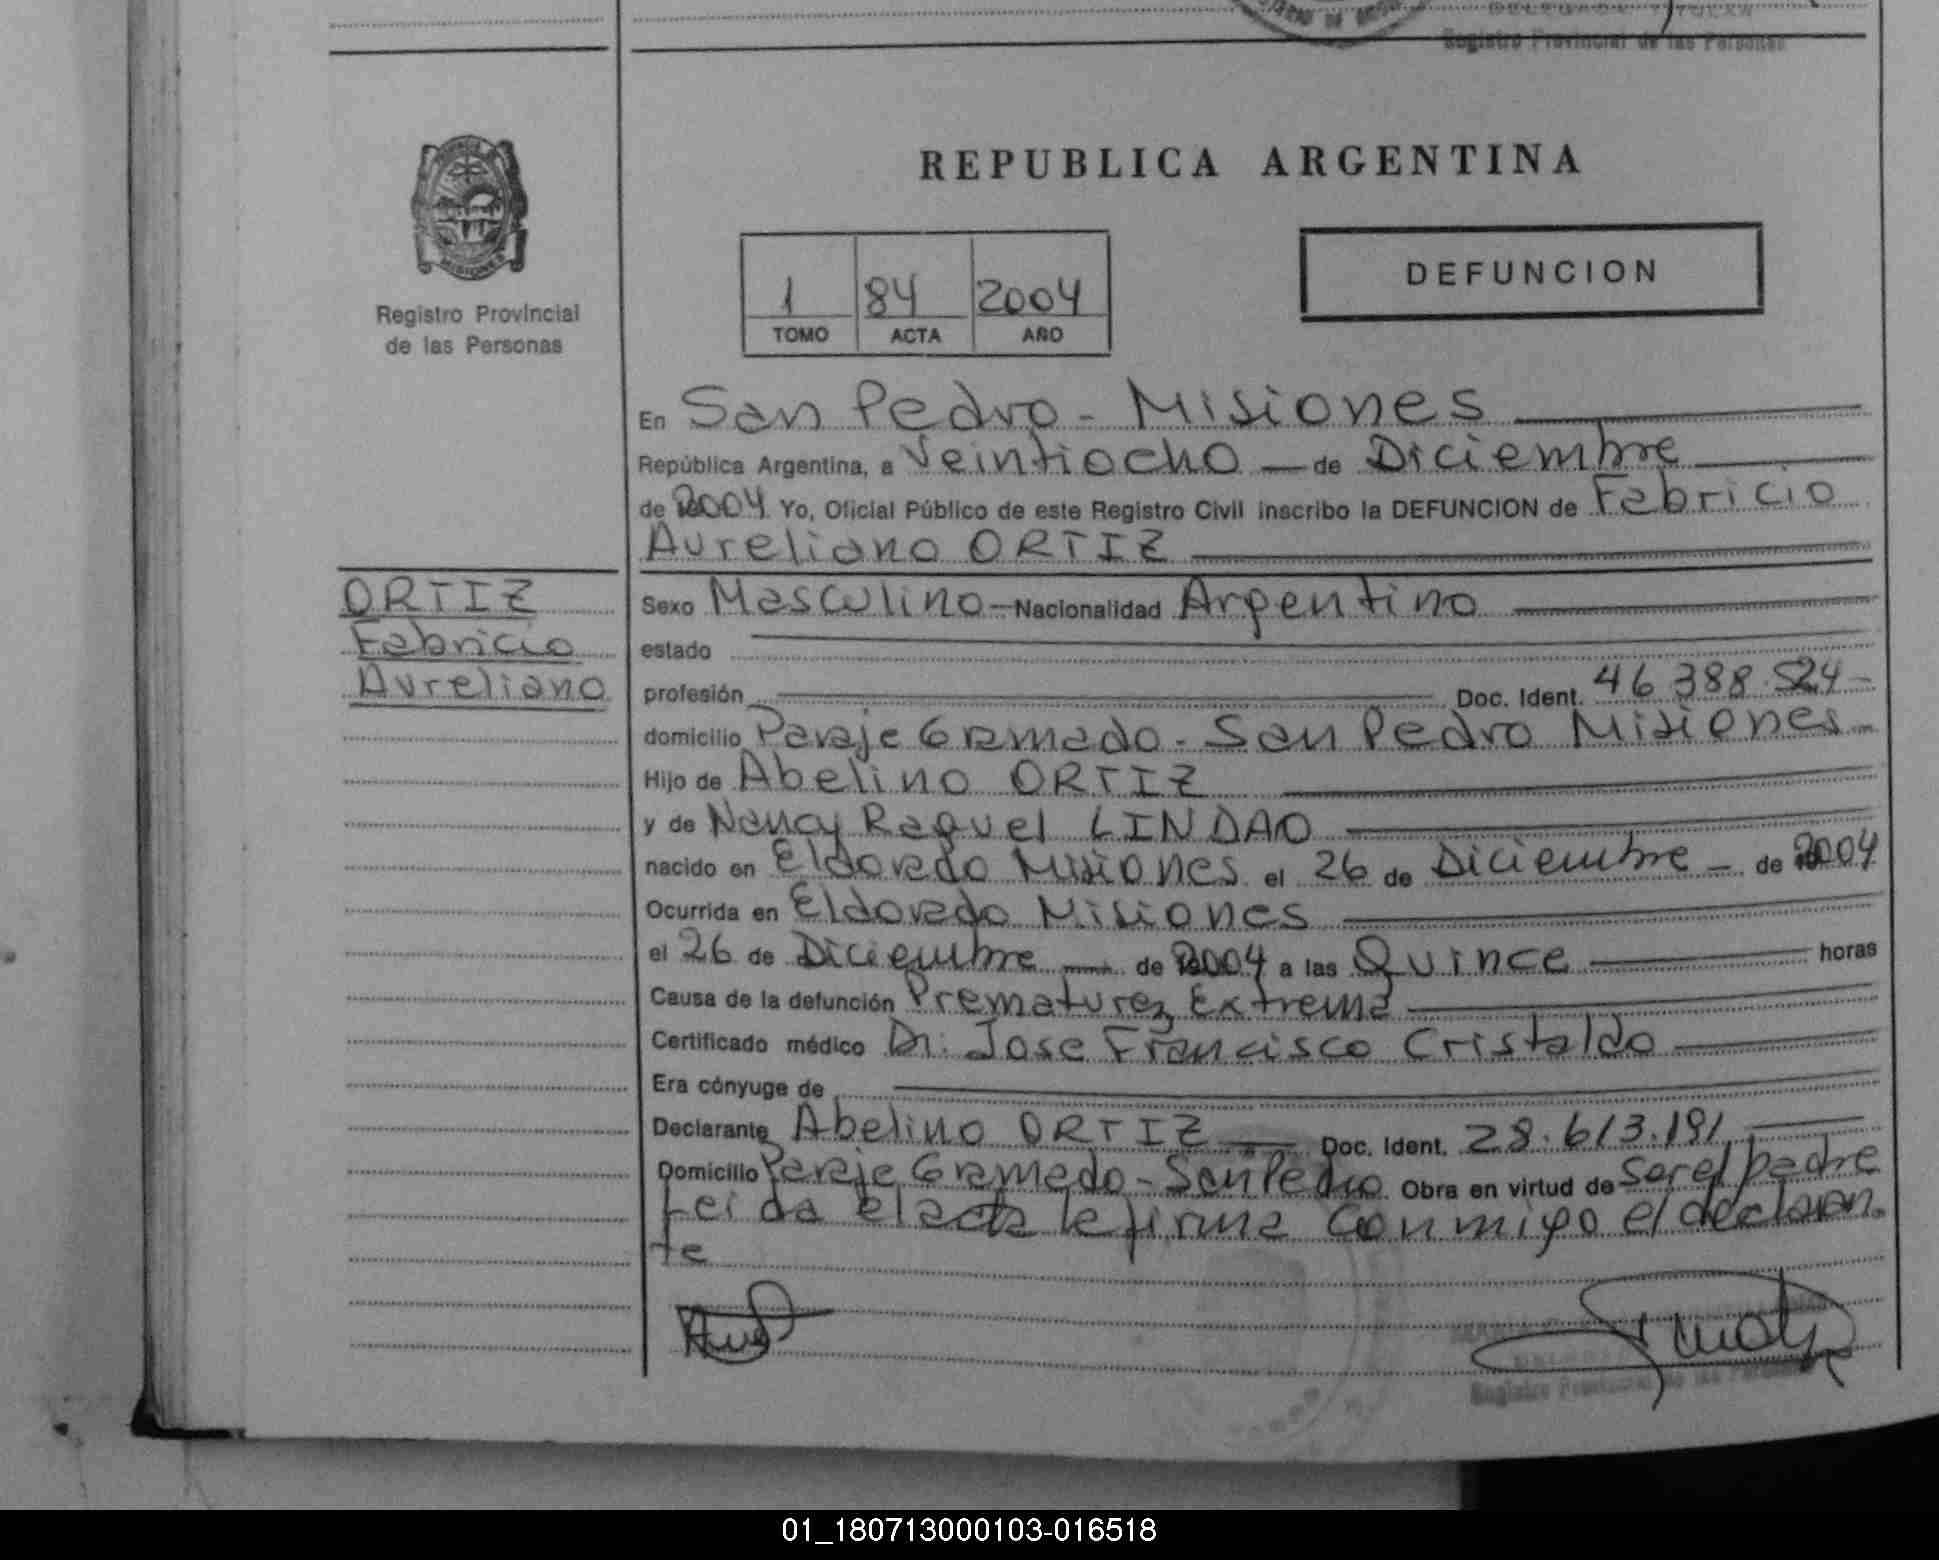 Registro Provincial de las Personas
REPUBLICA ARGENTINA
MISIONES
Registro Provincial
de las Personas
1 84 2004
TOMO ACTA AÑO
DEFUNCION
En San Pedro - Misiones
República Argentina, a Veintiocho - de Diciembre
de 2004 Yo, Oficial Público de este Registro Civil inscribo la DEFUNCION de Fabricio
Aureliano ORTIZ
ORTIZ
Fabricio
Aureliano
Sexo Masculino - Nacionalidad Argentino
estado
profesión Doc. Ident. 46.388.524-
domicilio Paraje Gramado - San Pedro Misiones
Hijo de Abelino ORTIZ
y de Nancy Raquel LINDAO
nacido en Eldorado Misiones el 26 de Diciembre - de 2004
Ocurrida en Eldorado Misiones
el 26 de Diciembre - de 2004 a las Quince horas
Causa de la defunción Prematurez Extrema
Certificado médico Dr. Jose Francisco Cristaldo
Era cónyuge de
Declarante Abelino ORTIZ Doc. Ident. 28.613.191
Domicilio Paraje Gramado - San Pedro Obra en virtud de ser el padre
Leida el acta la firma conmigo el declaran
te
Registro Provincial de las Personas
01_180713000103-016518